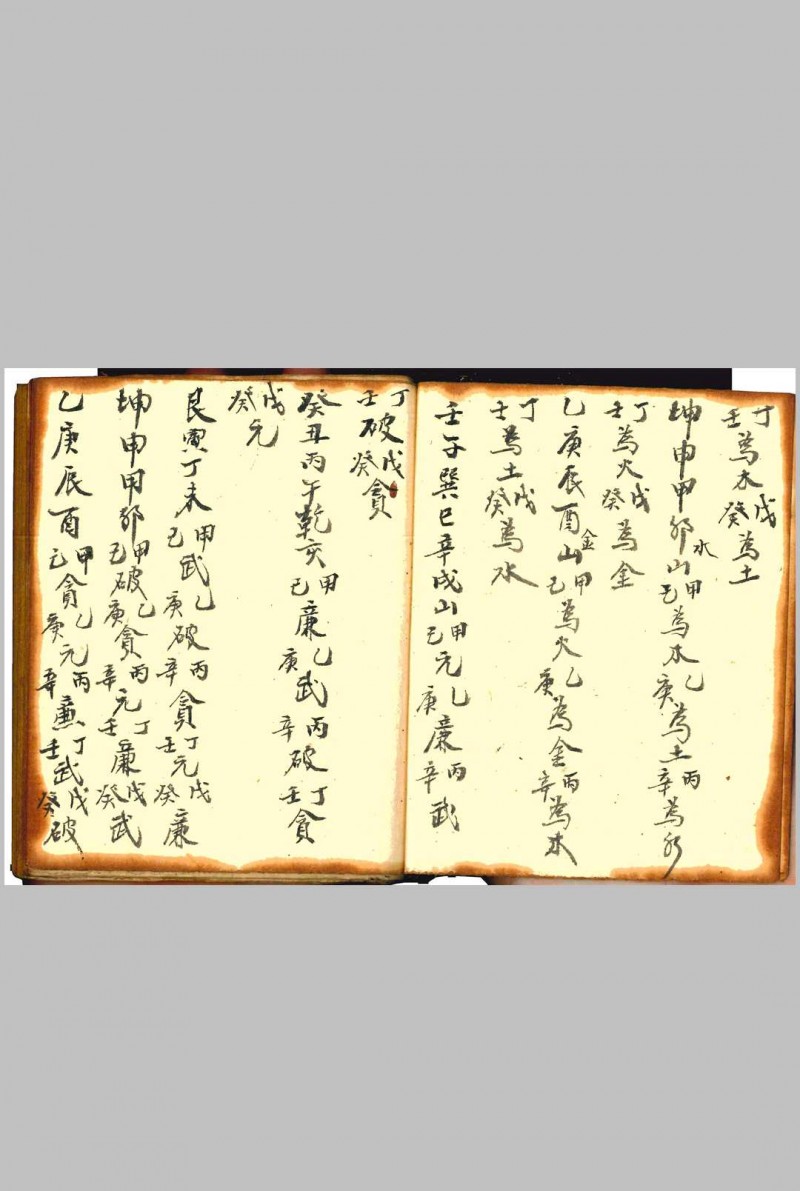 丁壬為木戊癸為土
坤申甲卯山水甲己為木乙庚為土丙辛為水
丁壬為火戊癸為金
乙庚辰酉山金甲己為火乙庚為金丙辛為木
丁壬為土戊癸為水
壬子巽巳辛戌山甲己元乙庚廉丙辛武
丁壬破戊癸貪
癸丑丙午乾亥甲己廉乙庚武丙辛破丁壬貪
戊癸元
艮寅丁未甲己武乙庚破丙辛貪丁壬元戊癸廉
坤申甲卯甲己破乙庚貪丙辛元丁壬廉戊癸武
乙庚辰酉甲己貪乙庚元丙辛廉丁壬武戊癸破